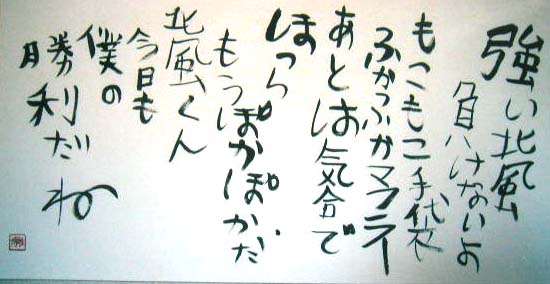 強い北風
負けないよ
もこもこ手袋
ふかふかマフラー
あとは気合で
ほっら
もうぽかぽかだ
北風くん
今日も
僕の
勝利だね